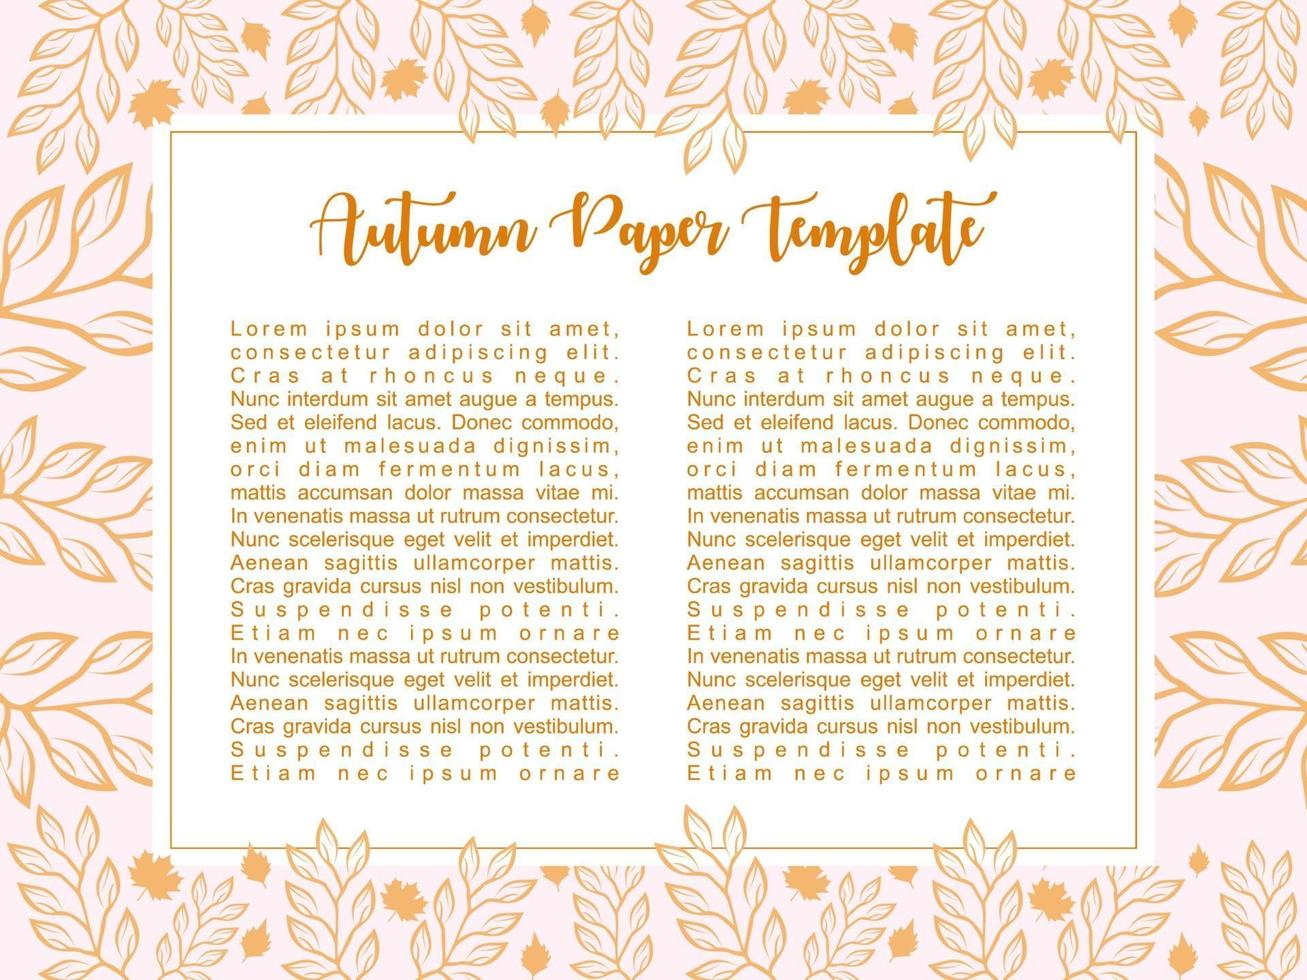 Autumn Paper Template
Lorem ipsum dolor sit amet,
consectetur adipiscing elit.
Cras at rhoncus neque.
Nunc interdum sit amet augue a tempus.
Sed et eleifend lacus. Donec commodo,
enim ut malesuada dignissim,
orci diam fermentum lacus,
mattis accumsan dolor massa vitae mi.
In venenatis massa ut rutrum consectetur.
Nunc scelerisque eget velit et imperdiet.
Aenean sagittis ullamcorper mattis.
Cras gravida cursus nisl non vestibulum.
Suspendisse potenti.
Etiam nec ipsum ornare
In venenatis massa ut rutrum consectetur.
Nunc scelerisque eget velit et imperdiet.
Aenean sagittis ullamcorper mattis.
Cras gravida cursus nisl non vestibulum.
Suspendisse potenti.
Etiam nec ipsum ornare
Lorem ipsum dolor sit amet,
consectetur adipiscing elit.
Cras at rhoncus neque.
Nunc interdum sit amet augue a tempus.
Sed et eleifend lacus. Donec commodo,
enim ut malesuada dignissim,
orci diam fermentum lacus,
mattis accumsan dolor massa vitae mi.
In venenatis massa ut rutrum consectetur.
Nunc scelerisque eget velit et imperdiet.
Aenean sagittis ullamcorper mattis.
Cras gravida cursus nisl non vestibulum.
Suspendisse potenti.
Etiam nec ipsum ornare
In venenatis massa ut rutrum consectetur.
Nunc scelerisque eget velit et imperdiet.
Aenean sagittis ullamcorper mattis.
Cras gravida cursus nisl non vestibulum.
Suspendisse potenti.
Etiam nec ipsum ornare